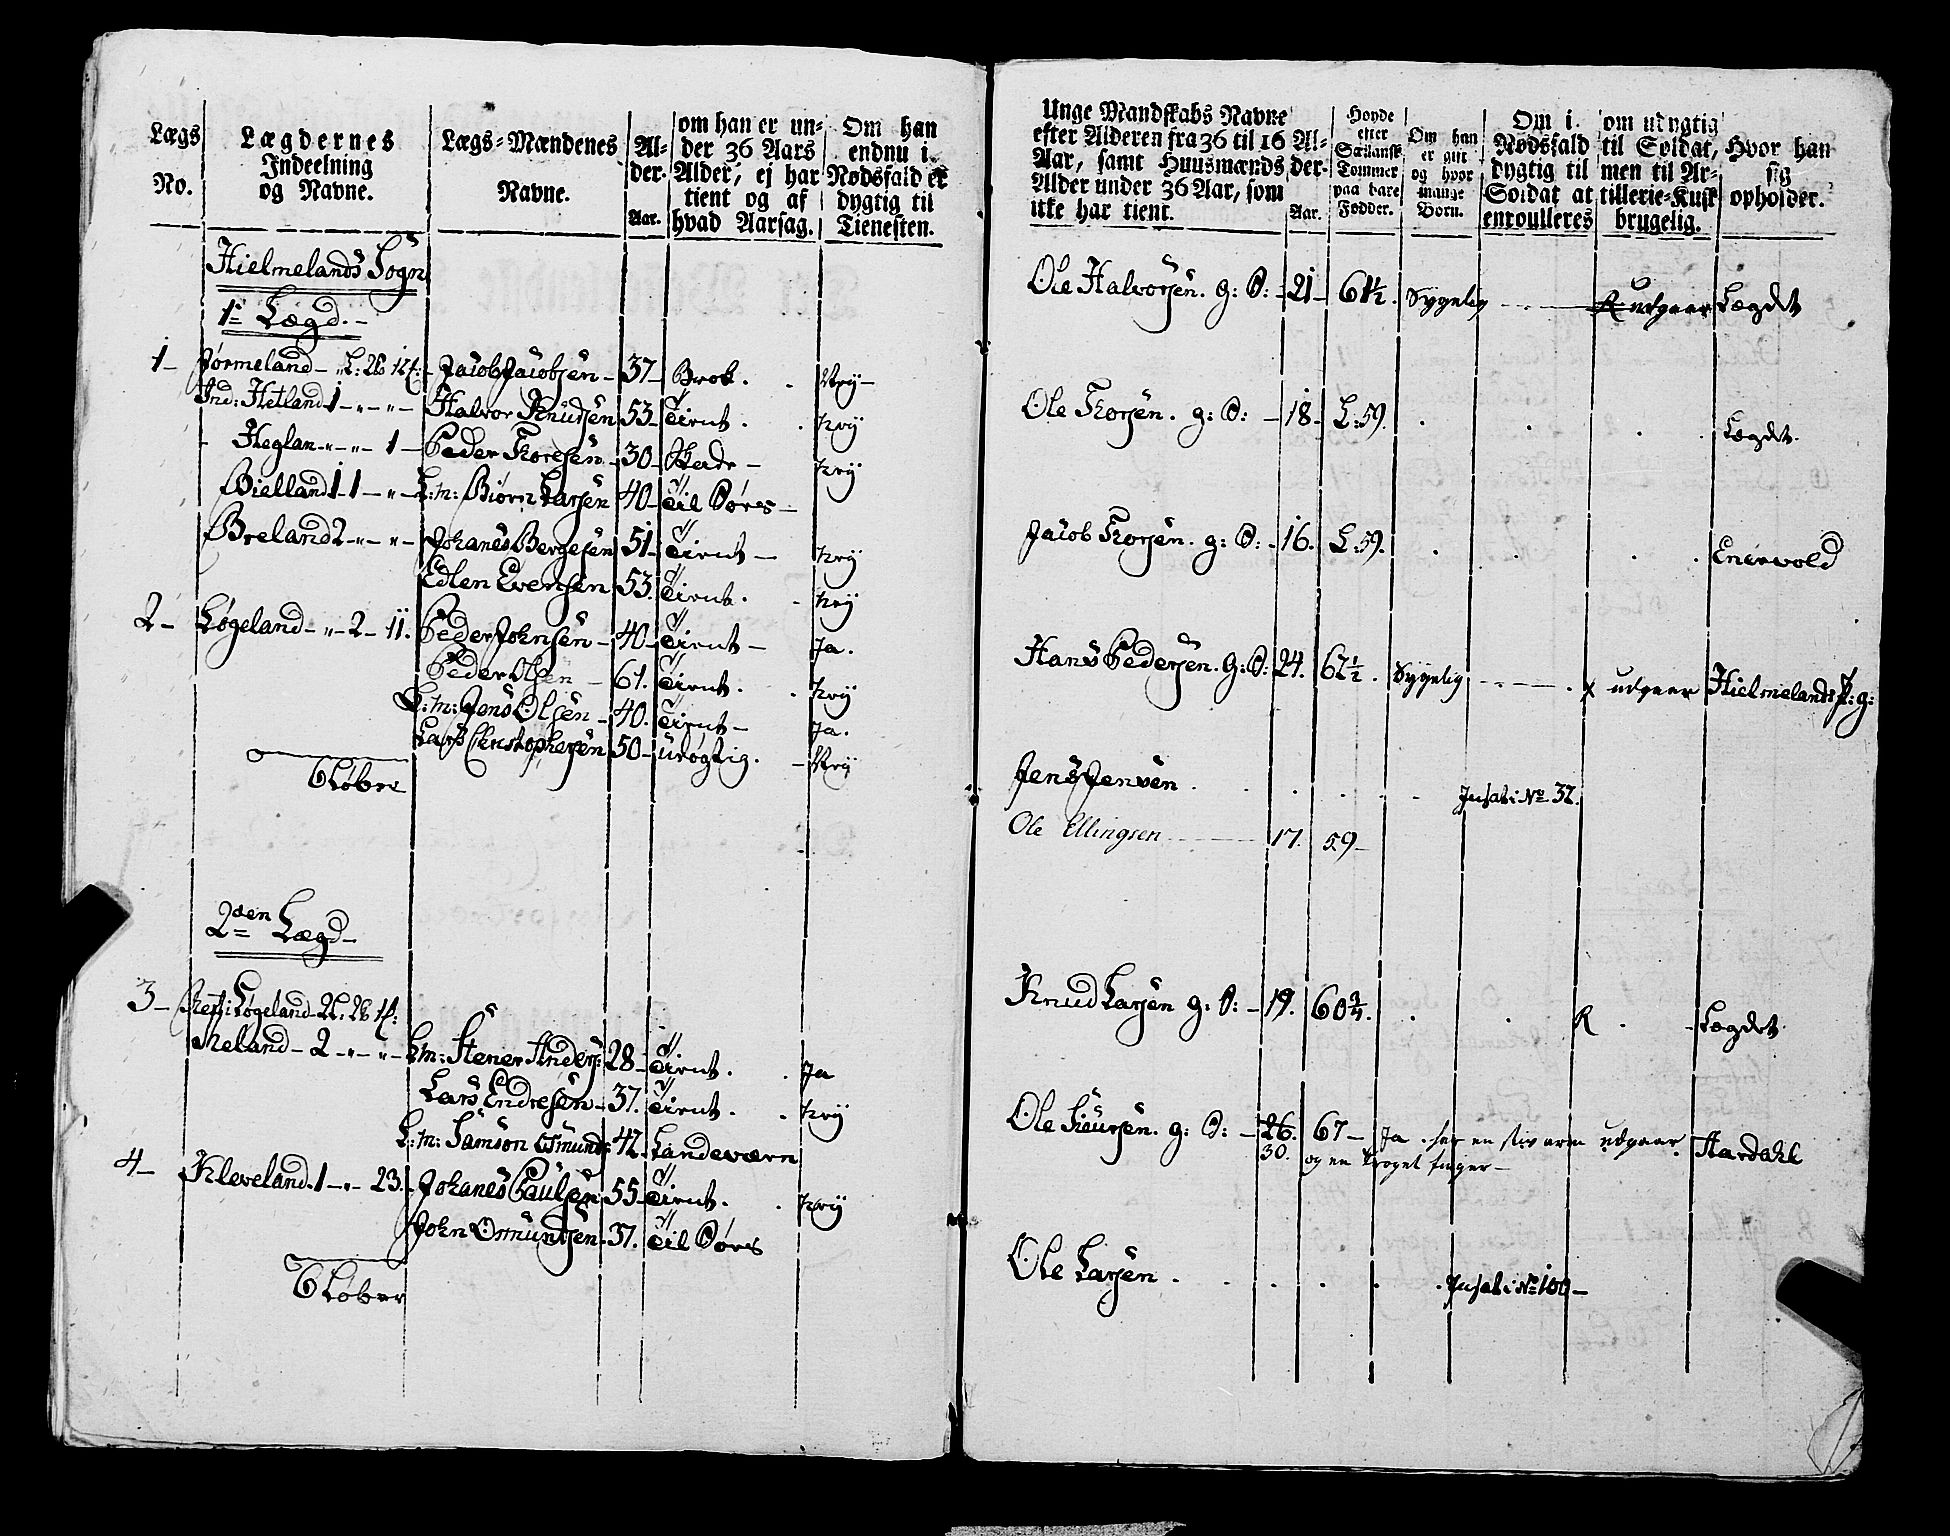 Lægs
No.
Lægdernes
Indeelning
og Navne.
Lægs-Mændenes
Navne.
Al-
der.
Aar.
om han er un-
der 36 Aars
Alder, ej har
tient og af
hvad Aarsag.
Om han
endnu i
Nødsfald er
dygtig til
Tienesten.
Hielmelands Sogn
1e Lægd.
1 Jørmeland Jacob Jacobsen 37 Brok.
Ind: Hetland 1 Halvor Knudsen 53 Tient.
Heglan 1 Peder Toresen 30
Bielland 1 1 L:m: Biørn Larsen 40 Til Søes
Breland 2 Johanes Bergesen 51 Tient
Edlen Evensen 53 Tient.
2 Løgeland 2 11. Peder Johnsen 40 Tient Ja.
Peder Olsen 61. Tient.
L:m: Jens Olsen 40. Tient Ja.
Lars Christophersen 50 urøgtig.
6 Løber
2den Lægd
3 Løgeland
Meland 2 L:m: Stener Anders: 28 Tient. Ja
Lars Endresen 37. Tient.
L:m: Samson Osmunds: 42. Landeværn
4 Kleveland 1 23. Johanes Paulsen 55 Tient.
John Osmundsen 37. Til Søes
6 Løber
Unge Mandskabs Navne
efter Alderen fra 36 til 16
Aar, samt Huusmænds
Alder under 36 Aar, som
ikke har tient.
Al-
der.
Aar.
Høyde
efter
Siællansk
Tommer
paa bare
Fødder.
Om han
er gift
og hvor
mange
Børn.
Om i
Nødsfald
dygtig til
Soldat at
enroulleres
om udygtig
til Soldat,
men til Ar-
tillerie-Kusk
brugelig.
Hvor han
sig
opholder.
Ole Halvorsen. g: S: 21 61½. Sygelig udgaar Lægdet
Ole Torsen. g: S: 18 L:59. Lægdet.
Jacob Torsen. g: S: 16. L:59. Enervold
Hans Pedersen. g: S: 24. 62½. Sygelig x udgaar Hielmelands P:g:
Jens Jensen Indsat i No 32.
Ole Ellingsen 17. 59
Knud Larsen g: S: 19. 60¾. R Lægdet
Ole Siursen. g: S: 26. 67 Ja har en stiv arm udgaar. Hardahl
30. og en kroget finger
Ole Larsen Indsat i No 100